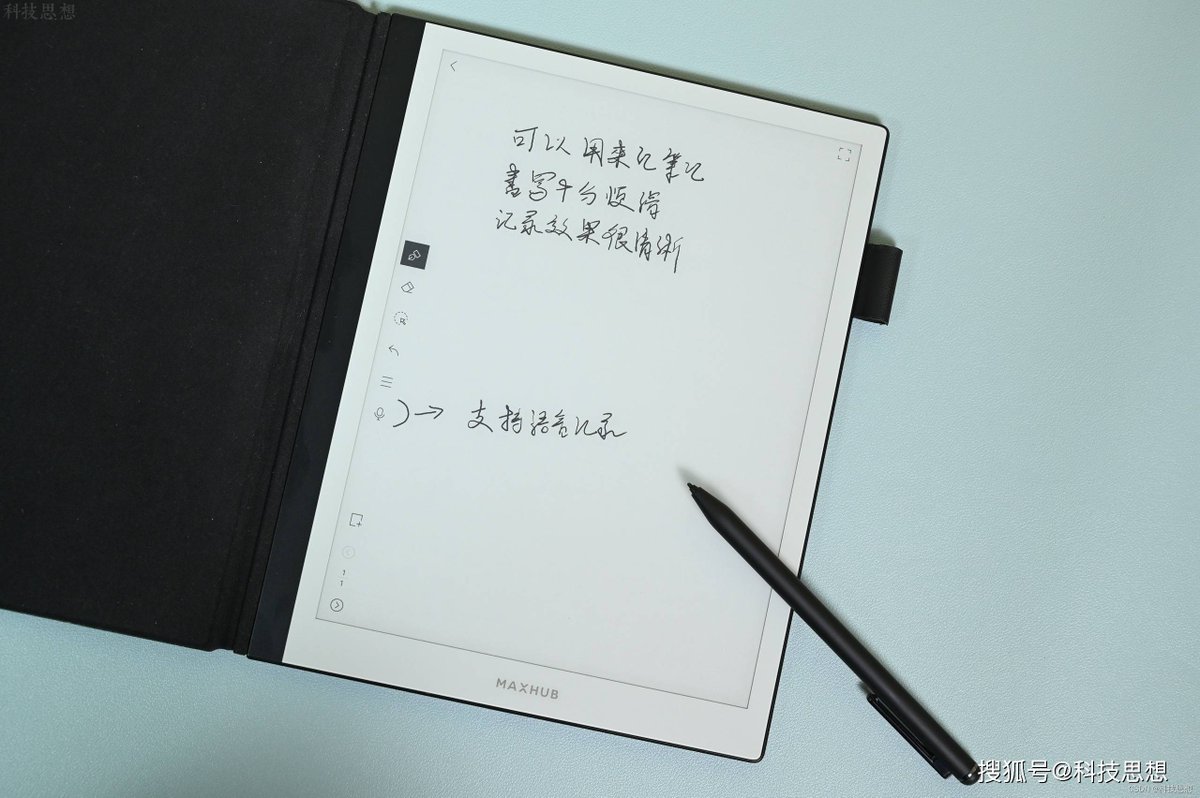 科技思想
可以用来记笔记
书写十分顺滑
记录效果很清晰
支持语音记录
1
1
MAXHUB
搜狐号@科技思想
CSDN @科技思想